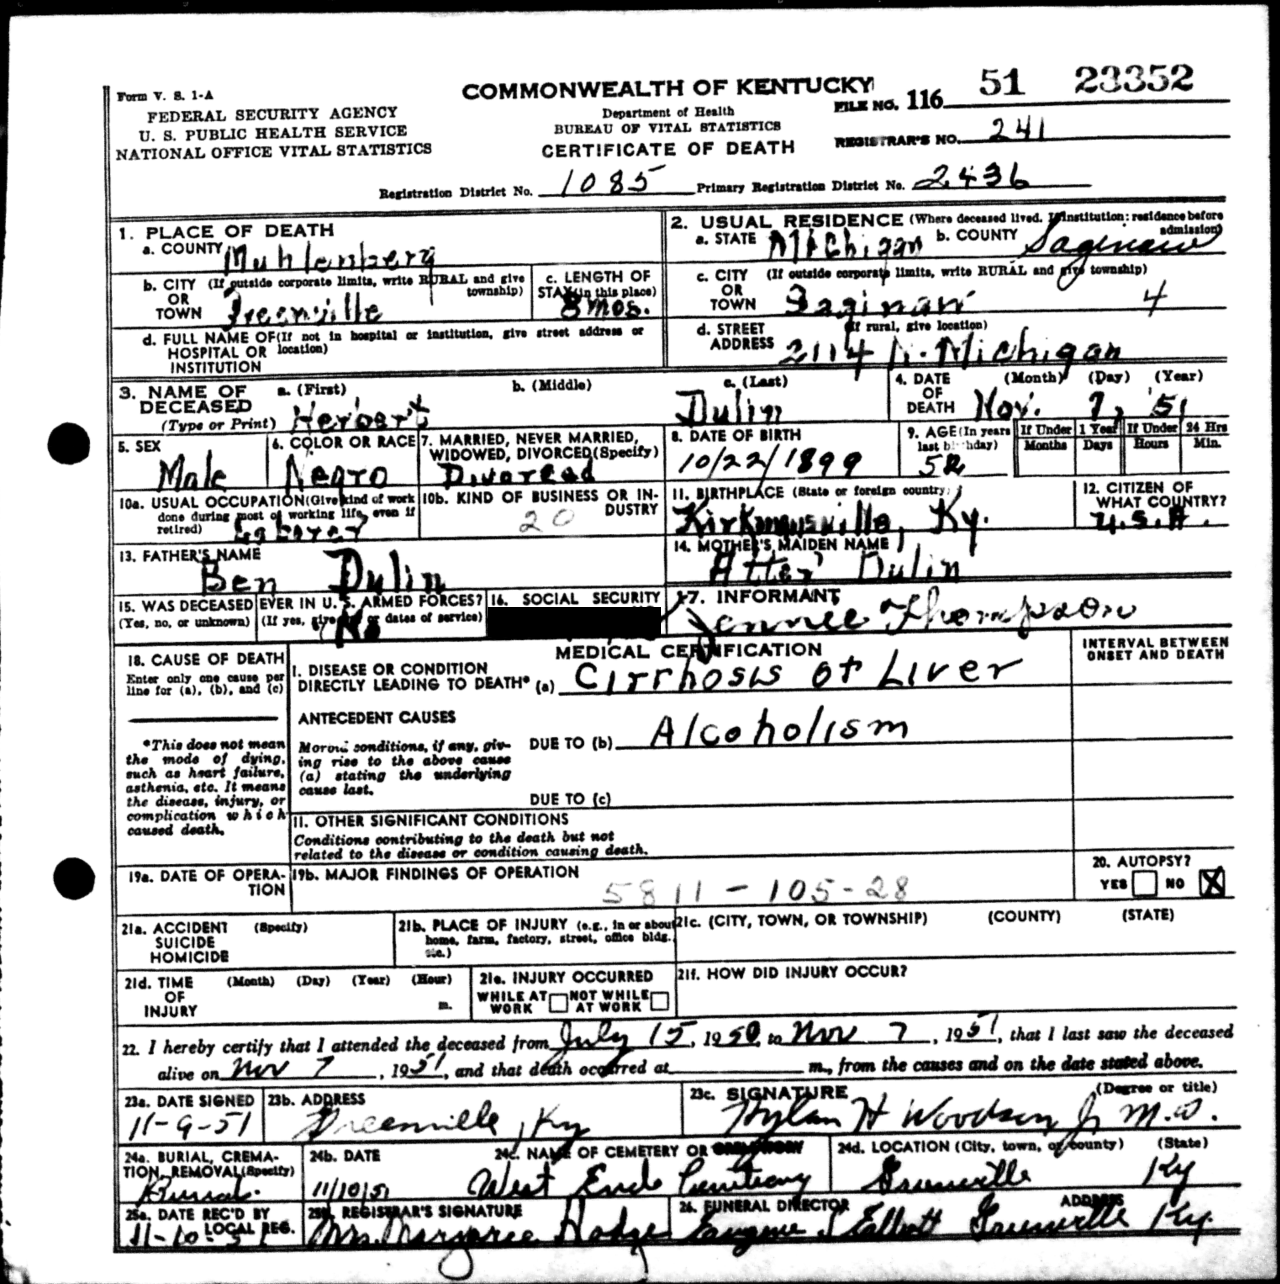 Form V. S. 1-A
FEDERAL SECURITY AGENCY
U. S. PUBLIC HEALTH SERVICE
NATIONAL OFFICE VITAL STATISTICS
COMMONWEALTH OF KENTUCKY
Department of Health
BUREAU OF VITAL STATISTICS
CERTIFICATE OF DEATH
FILE NO. 116 51 23352
REGISTRAR'S NO. 241
Registration District No. 1085 Primary Registration District No. 2436
1. PLACE OF DEATH
a. COUNTY Muhlenberg
b. CITY (If outside corporate limits, write RURAL and give township)
OR
TOWN Greenville
c. LENGTH OF STAY (in this place) 8 mos.
d. FULL NAME OF (If not in hospital or institution, give street address or location)
HOSPITAL OR
INSTITUTION
2. USUAL RESIDENCE (Where deceased lived. If institution: residence before admission)
a. STATE Michigan b. COUNTY Saginaw
c. CITY (If outside corporate limits, write RURAL and give township)
OR
TOWN Saginaw 4
d. STREET (If rural, give location)
ADDRESS 2114 N. Michigan
3. NAME OF DECEASED (Type or Print)
a. (First) Herbert b. (Middle) c. (Last) Dulin
4. DATE OF DEATH (Month) (Day) (Year) Nov. 7, '51
5. SEX Male
6. COLOR OR RACE Negro
7. MARRIED, NEVER MARRIED, WIDOWED, DIVORCED (Specify) Divorced
8. DATE OF BIRTH 10/22/1899
9. AGE (In years last birthday) 52
If Under 1 Year Months Days
If Under 24 Hrs Hours Min.
10a. USUAL OCCUPATION (Give kind of work done during most of working life, even if retired) Laborer
10b. KIND OF BUSINESS OR INDUSTRY 20
11. BIRTHPLACE (State or foreign country) Kirkmansville, Ky.
12. CITIZEN OF WHAT COUNTRY? U.S.A.
13. FATHER'S NAME
Ben Dulin
14. MOTHER'S MAIDEN NAME
Dulin
15. WAS DECEASED EVER IN U. S. ARMED FORCES?
(Yes, no, or unknown) (If yes, give war or dates of service) No
16. SOCIAL SECURITY
17. INFORMANT
Jennee Thompson
MEDICAL CERTIFICATION
INTERVAL BETWEEN ONSET AND DEATH
18. CAUSE OF DEATH
Enter only one cause per line for (a), (b), and (c)
*This does not mean the mode of dying, such as heart failure, asthenia, etc. It means the disease, injury, or complication which caused death.
I. DISEASE OR CONDITION DIRECTLY LEADING TO DEATH* (a) Cirrhosis of Liver
ANTECEDENT CAUSES
Morbid conditions, if any, giving rise to the above cause (a) stating the underlying cause last.
DUE TO (b) Alcoholism
DUE TO (c)
II. OTHER SIGNIFICANT CONDITIONS
Conditions contributing to the death but not related to the disease or condition causing death.
19a. DATE OF OPERATION
19b. MAJOR FINDINGS OF OPERATION
5811-105-28
20. AUTOPSY?
YES NO X
21a. ACCIDENT (Specify)
SUICIDE
HOMICIDE
21b. PLACE OF INJURY (e.g., in or about home, farm, factory, street, office bldg. etc.)
21c. (CITY, TOWN, OR TOWNSHIP) (COUNTY) (STATE)
21d. TIME OF INJURY (Month) (Day) (Year) (Hour) m.
21e. INJURY OCCURRED
WHILE AT WORK NOT WHILE AT WORK
21f. HOW DID INJURY OCCUR?
22. I hereby certify that I attended the deceased from July 15, 1950 to Nov 7, 1951, that I last saw the deceased
alive on Nov 7, 1951, and that death occurred at m., from the causes and on the date stated above.
23a. DATE SIGNED 11-9-51
23b. ADDRESS Greenville, Ky
23c. SIGNATURE (Degree or title)
Hylan H Woodson Jr M.D.
24a. BURIAL, CREMATION, REMOVAL (Specify) Burial
24b. DATE 11/10/51
24c. NAME OF CEMETERY OR CREMATORY
West End Cemetery
24d. LOCATION (City, town, or county) (State)
Greenville Ky
25a. DATE REC'D BY LOCAL REG. 11-10-51
25b. REGISTRAR'S SIGNATURE
Mrs. Margaree Hodge
26. FUNERAL DIRECTOR ADDRESS
Eugene Elliott Greenville Ky.